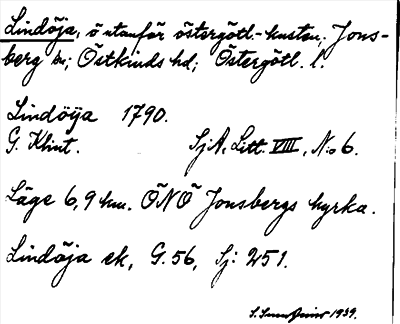 Lindöja, ö utanför östergötl.-kusten; Jons-
berg sn; Östkinds hd; Östergötl. l.
Lindöÿa 1790.
G. Klint. SjA, Litt. VIII, N:o 6.
Läge 6,9 km. ÖNÖ Jonsbergs kyrka.
Lindöja ek, G. 56, Sj: 251.
S. 1939.